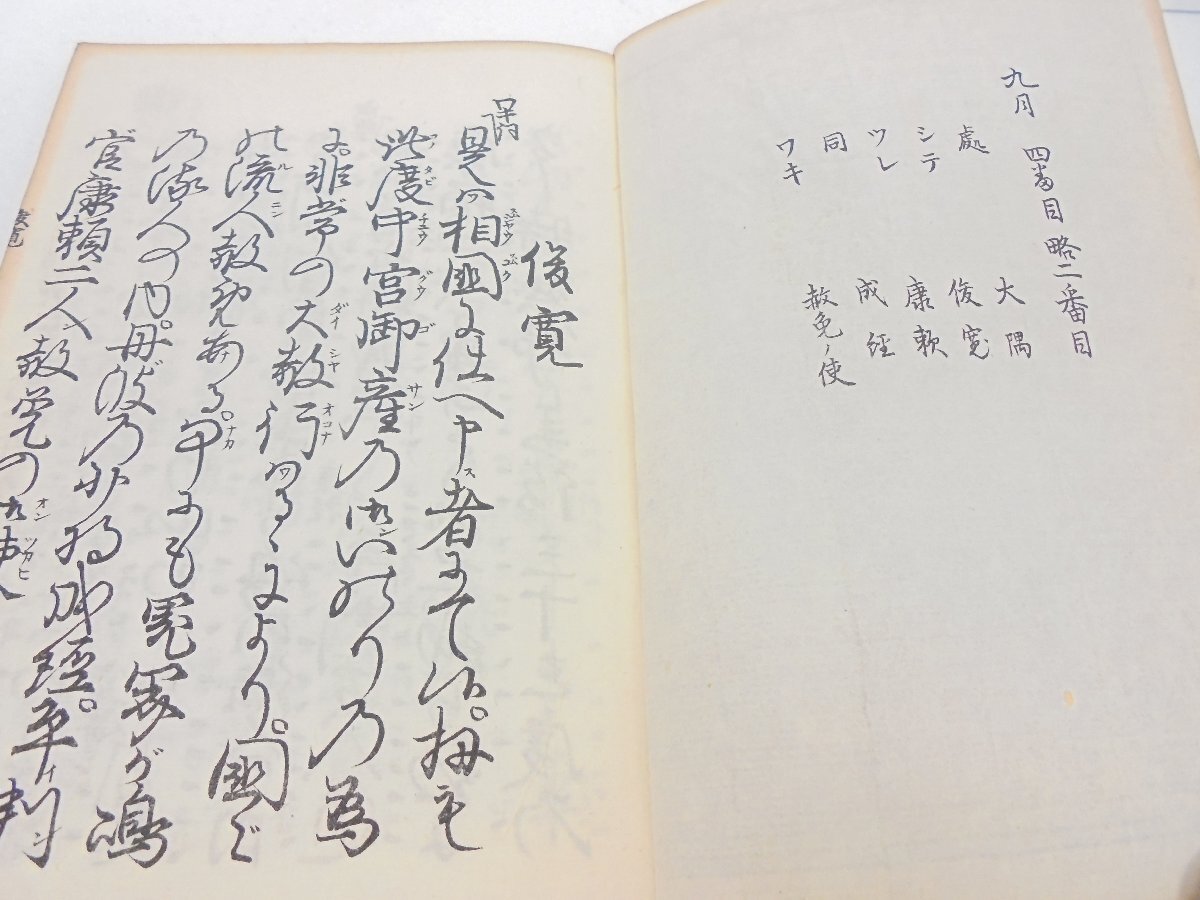 九月 四番目 略二番目
處 大隅
シテ 俊寛
ツレ 康頼
同 成経
ワキ 赦免ノ使
俊寛
是は相國に仕へ申す者にて候。扨も
此度中宮御産の御いのりの為
に。非常の大赦行はるゝにより。國ど
の流人赦免ある。中にも鬼界が嶋
の流人の内。丹波の少将成経。平判
官康頼二人赦免の御使